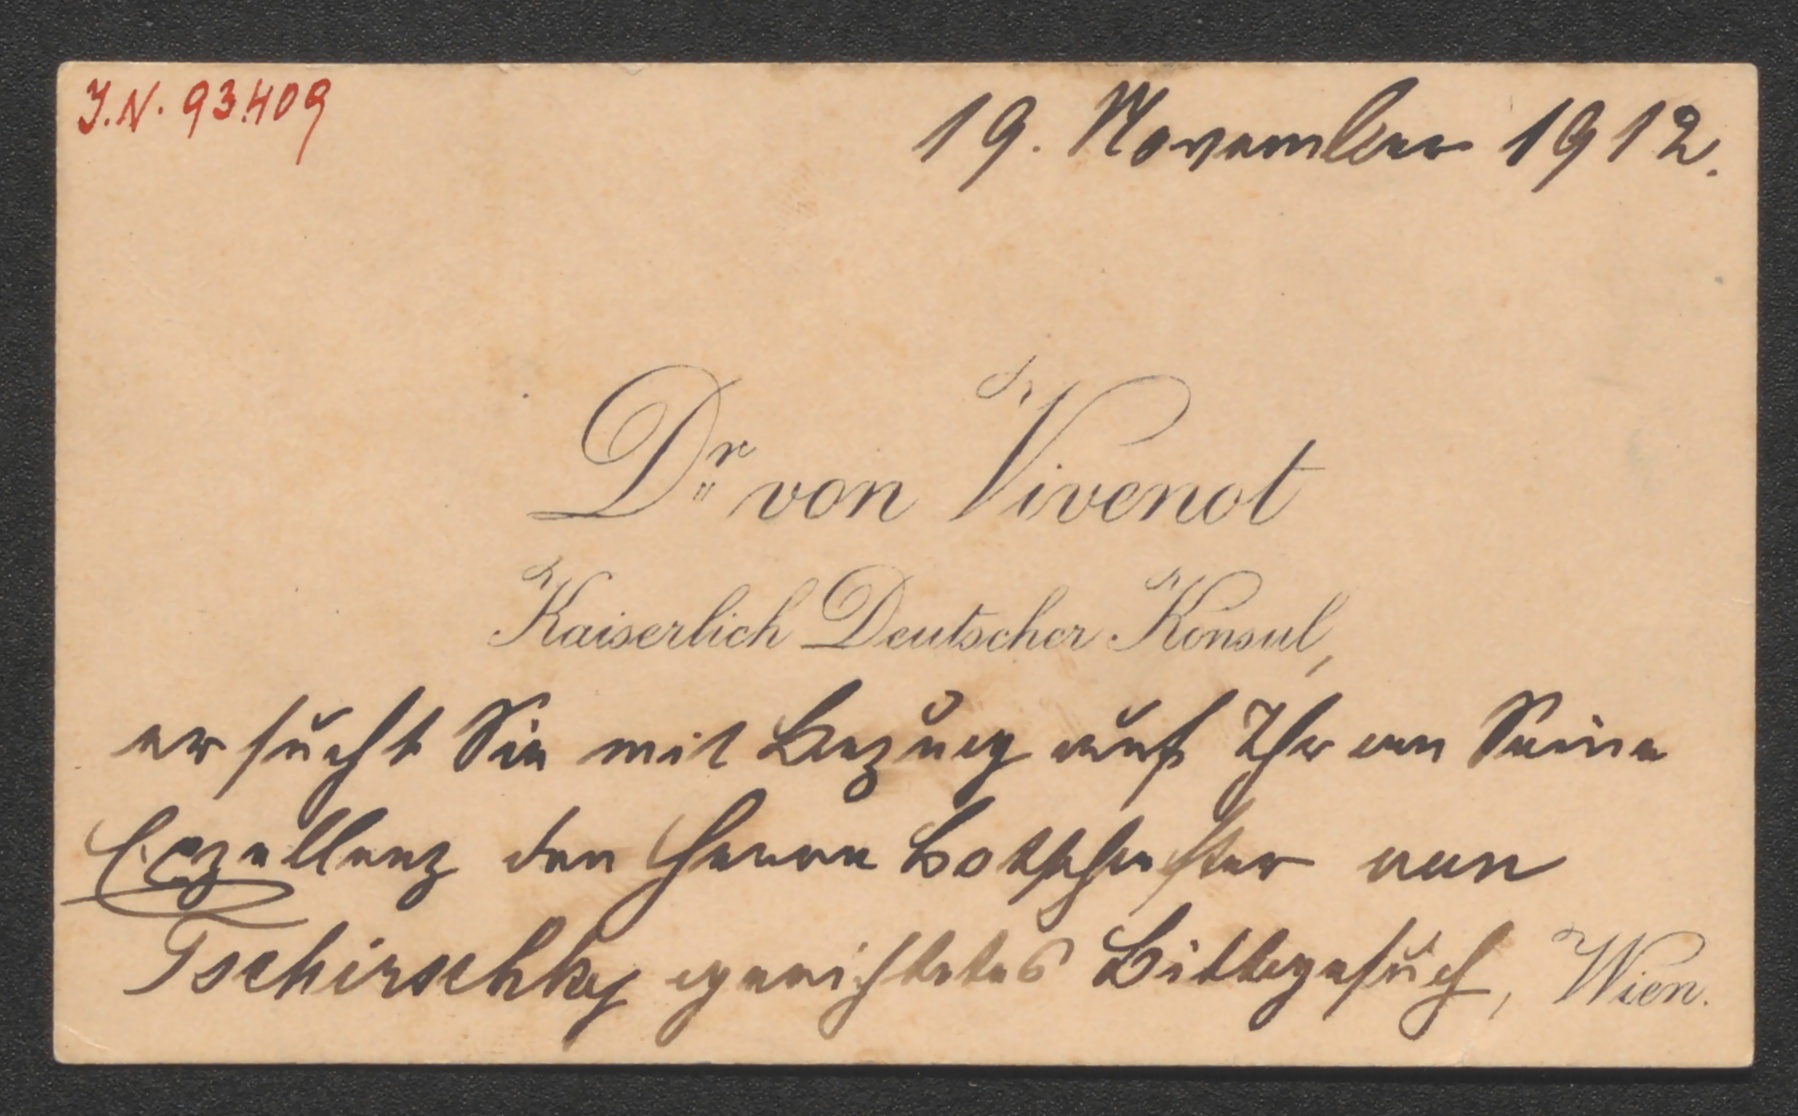 J.N. 93.409
19. November 1912.
Dr. von Vivenot
Kaiserlich Deutscher Konsul,
ersucht Sie mit Bezug auf Ihr an Seine
Exzellenz den Herrn Botschafter von
Tschirschky gerichtetes Bittgesuch, Wien.